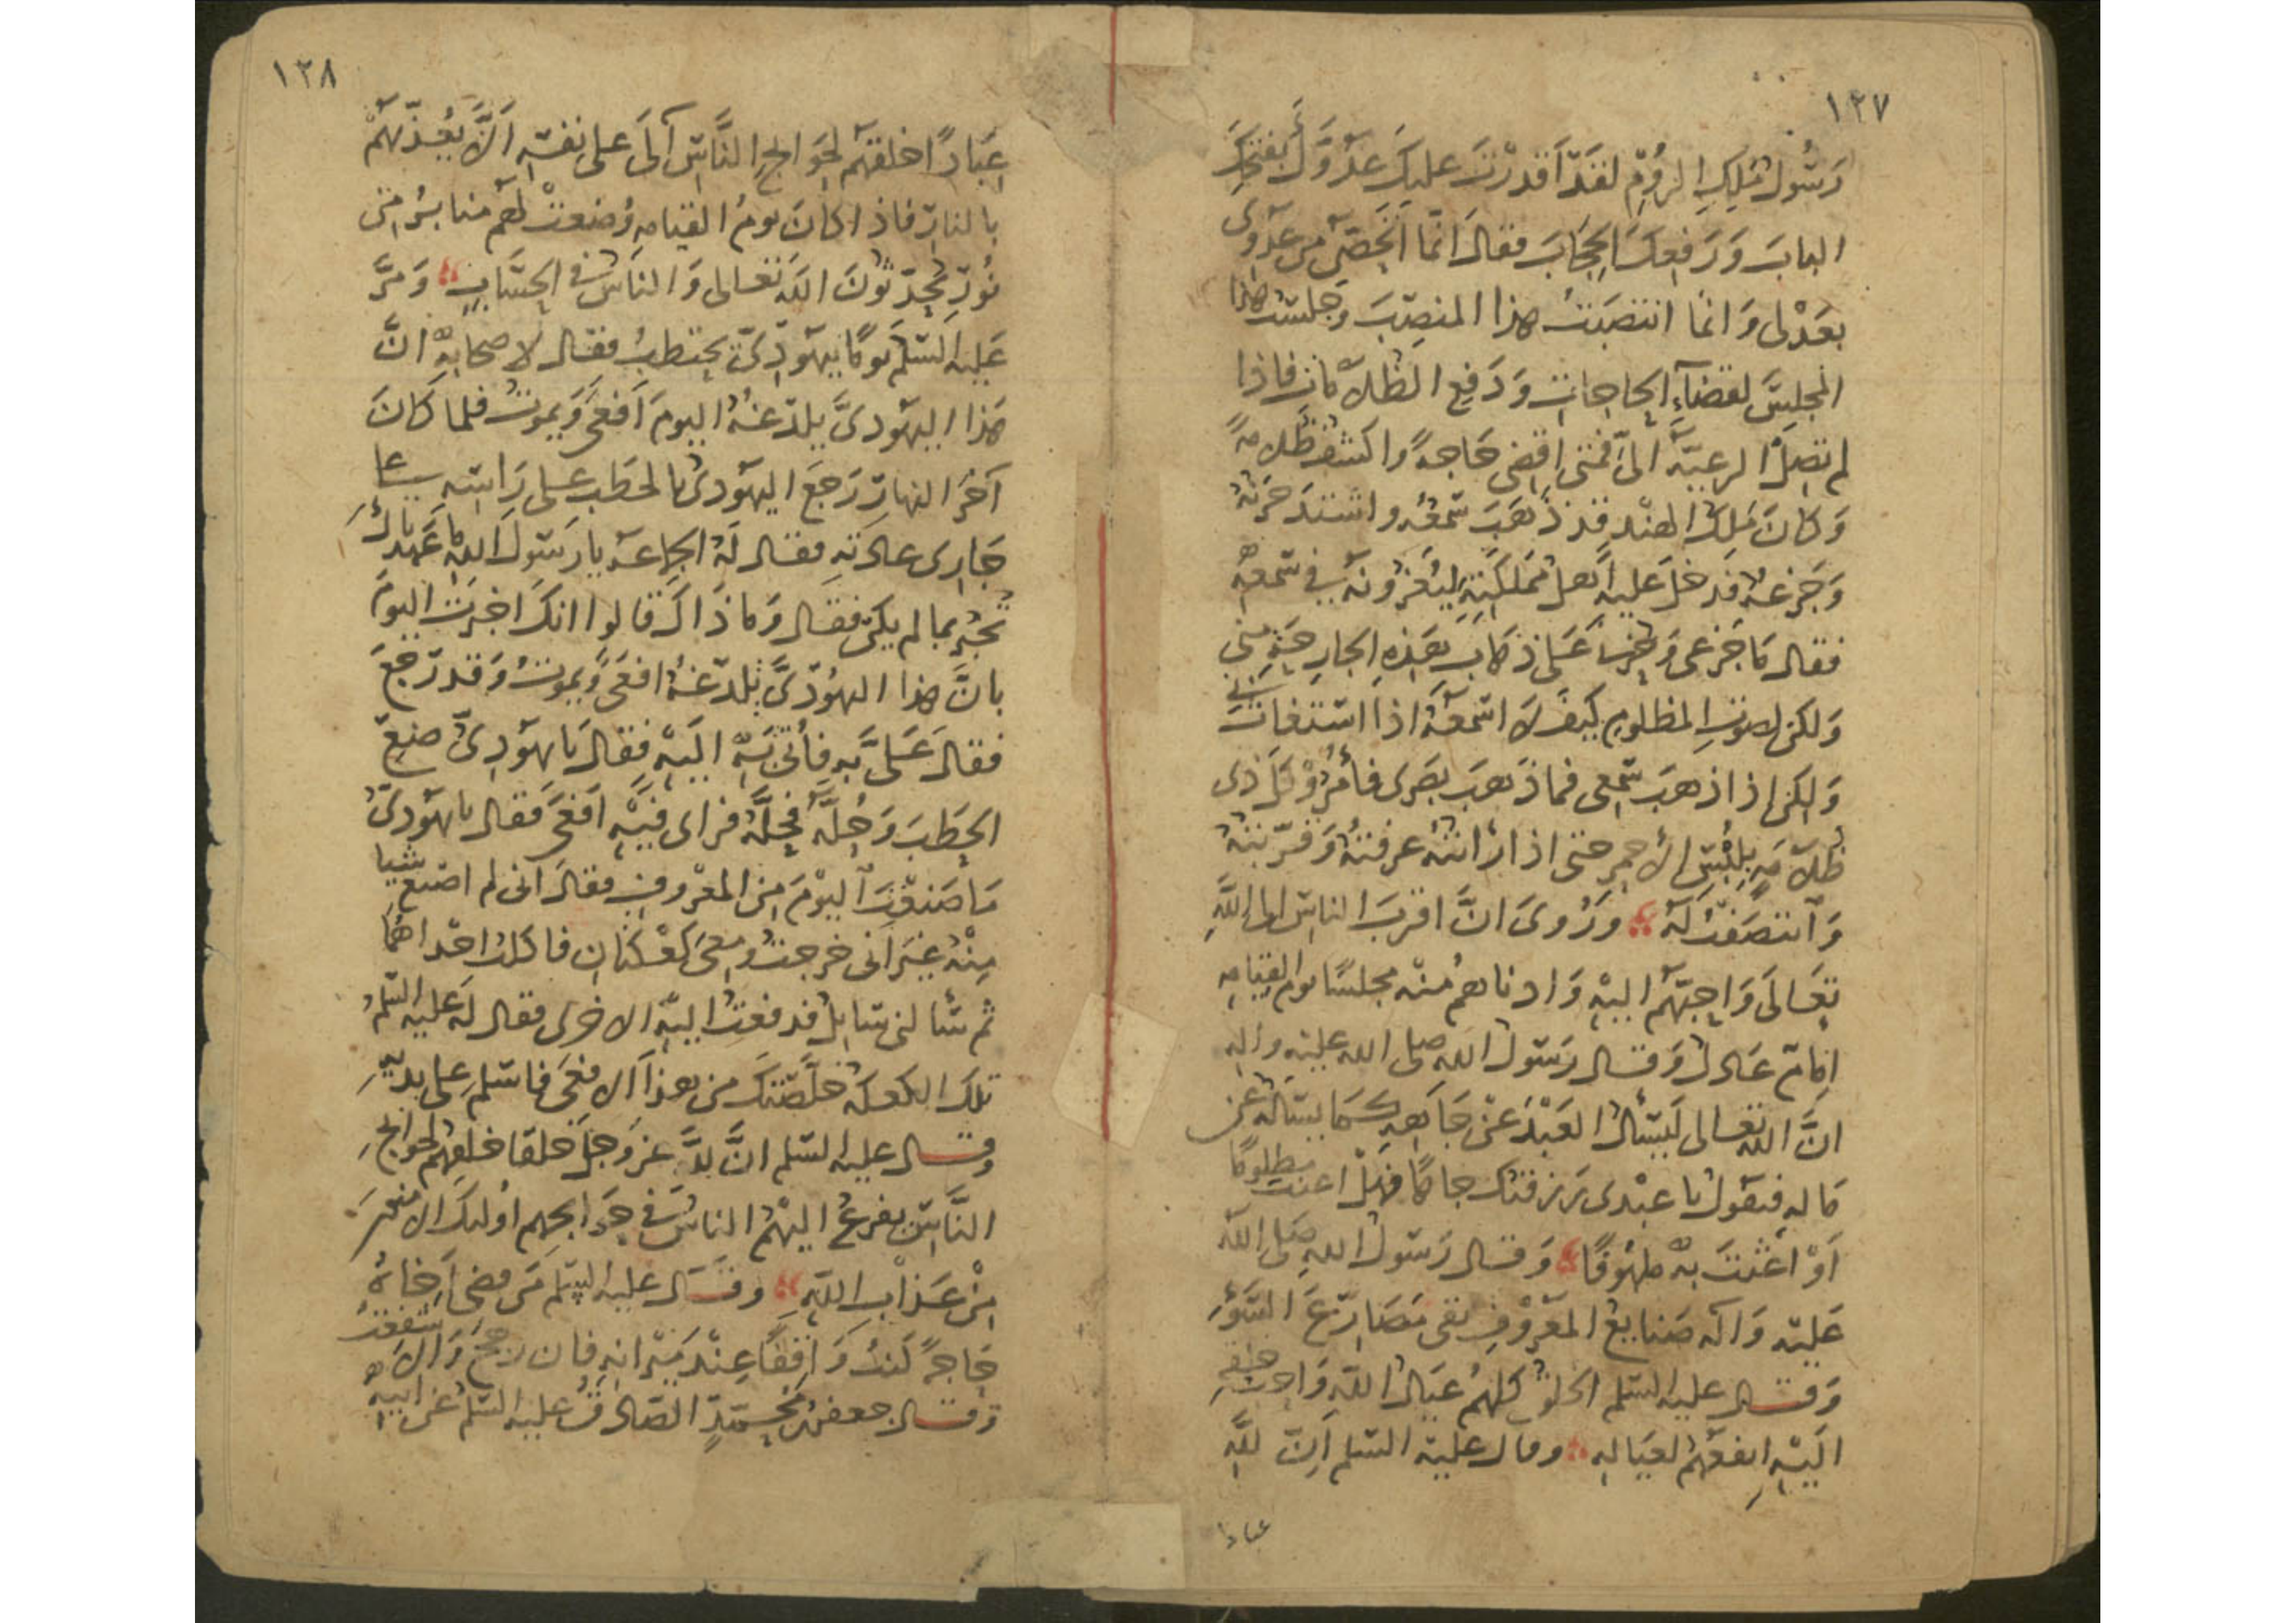 ١٢٧
رسول ملك الروم لقد أقدرت عليك عدوك بفتحك
الباب ورفعك الحجاب فقال انما اتحصن من عدوى
بعدلى وانما انتصبت هذا المنصب وجلست هذا
المجلس لقضاء الحاجات ودفع الظلامات فاذا
لم تصل الرعية الىّ فمتى اقضى حاجة واكشف ظلامة
وكان ملك الهند قد ذهب سمعه واشتد حزنه
وجزعه فدخل عليه أهل مملكته ليعزونه فى سمعه
فقال ما جزعى وحزنى على ذهاب هذه الجارحة منى
ولكن لصوت المظلوم كيف لا اسمعه اذا استغاث بى
ولكن اذا ذهب سمعى فما ذهب بصرى فأمروا كل ذى
ظلامة بلبس الأحمر حتى اذا رأيته عرفته وقربته
وانتصفت له وروى ان اقرب الناس الى الله
تعالى واحبهم اليه وادناهم منه مجلسا يوم القيامه
امام عادل وقال رسول الله صلى الله عليه واله
ان الله تعالى ليسأل العبد عن جاهه كما يسأله عن
ماله فيقول يا عبدى رزقتك جاها فهل اعنت مظلوما
أو أغثت به ملهوفا وقال رسول الله صلى الله
عليه وآله صنايع المعروف تقى مصارع السوء
وقال عليه السلم الخلق كلهم عيال الله واحب خلقه
اليه انفعهم لعياله وقال عليه السلم إن لله
عبادا
١٢٨
عبادا خلقهم لحوايج الناس آلى على نفسه ألا يعذبهم
بالنار فاذا كان يوم القيامه وضعت لهم منابر من
نور يحدثون الله تعالى والناس فى الحساب ومر
عليه السلم يوما بيهودى يحتطب فقال لاصحابه ان
هذا اليهودى يلدغه اليوم أفعى ويموت فلما كان
آخر النهار رجع اليهودى بالحطب على راسه على
جارى عادته فقال له الجماعة يا رسول الله ما عهدناك
تخبر بما لم يكن فقال وما ذاك قالوا انك اخبرت اليوم
بان هذا اليهودى تلدغه افعى ويموت وقد رجع
فقال على به فأتى به اليه فقال يا يهودى ضع
الحطب وحله فحله فراى فيه أفعى فقال يا يهودى
ما صنعت اليوم من المعروف فقال انى لم اصنع شيا
منه غير انى خرجت ومعى كعكتان فاكلت احداهما
ثم سألنى سايل فدفعت اليه الاخرى فقال له عليه السلم
تلك الكعكه خلصتك من هذا الافعى فاسلم على يديه
وقال عليه السلم ان لله عز وجل خلقا خلقهم لحوايج
الناس يفزع اليهم الناس فى حوايجهم اولئك الامنون
من عذاب الله وقال عليه السلم من قضى لاخاه
حاجة كنت واقفا عند ميزانه فان رجح والا شفعت
وقال جعفر بن محمد الصادق عليه السلم عن ابيه